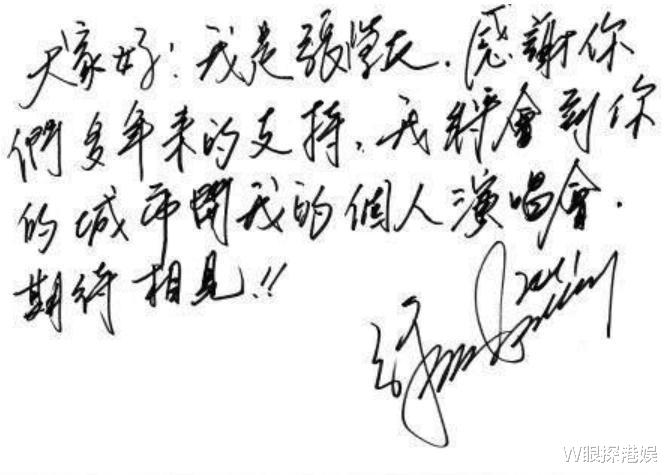 大家好！我是張學友．感謝你
們多年来的支持，我將會到你
的城市開我的個人演唱會．
期待相見!!
W眼探港娱